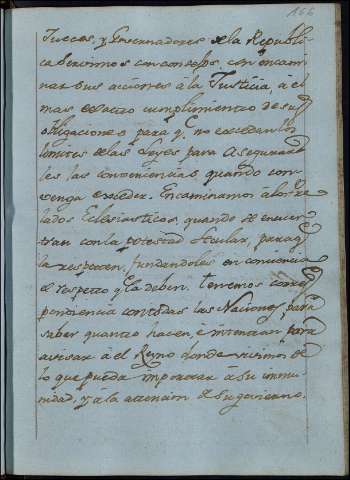 166
Jueces, y Governadores de la Republi-
ca dexemos consejos, con encami-
nar sus acciones à la Justicia, à el
mas exacto cumplimiento de su
obligacion para q.e no excedan los
limites de las Leyes para asegurar
les las conveniencias, quando con-
venga exceder. Encaminamos à los Pre
lados Eclesiasticos, quando se encuen
tran con la potestad Secular, para q.
la respeten, fundandoles en conciencia
el respecto q. la deben. tenemos corres
pondencia con todas las Naciones para
saber quanto hacen, è intentan para
avisar à el Reyno donde vivimos de
lo que pueda importar à su inmu-
nidad, y à la atencion de su govierno.